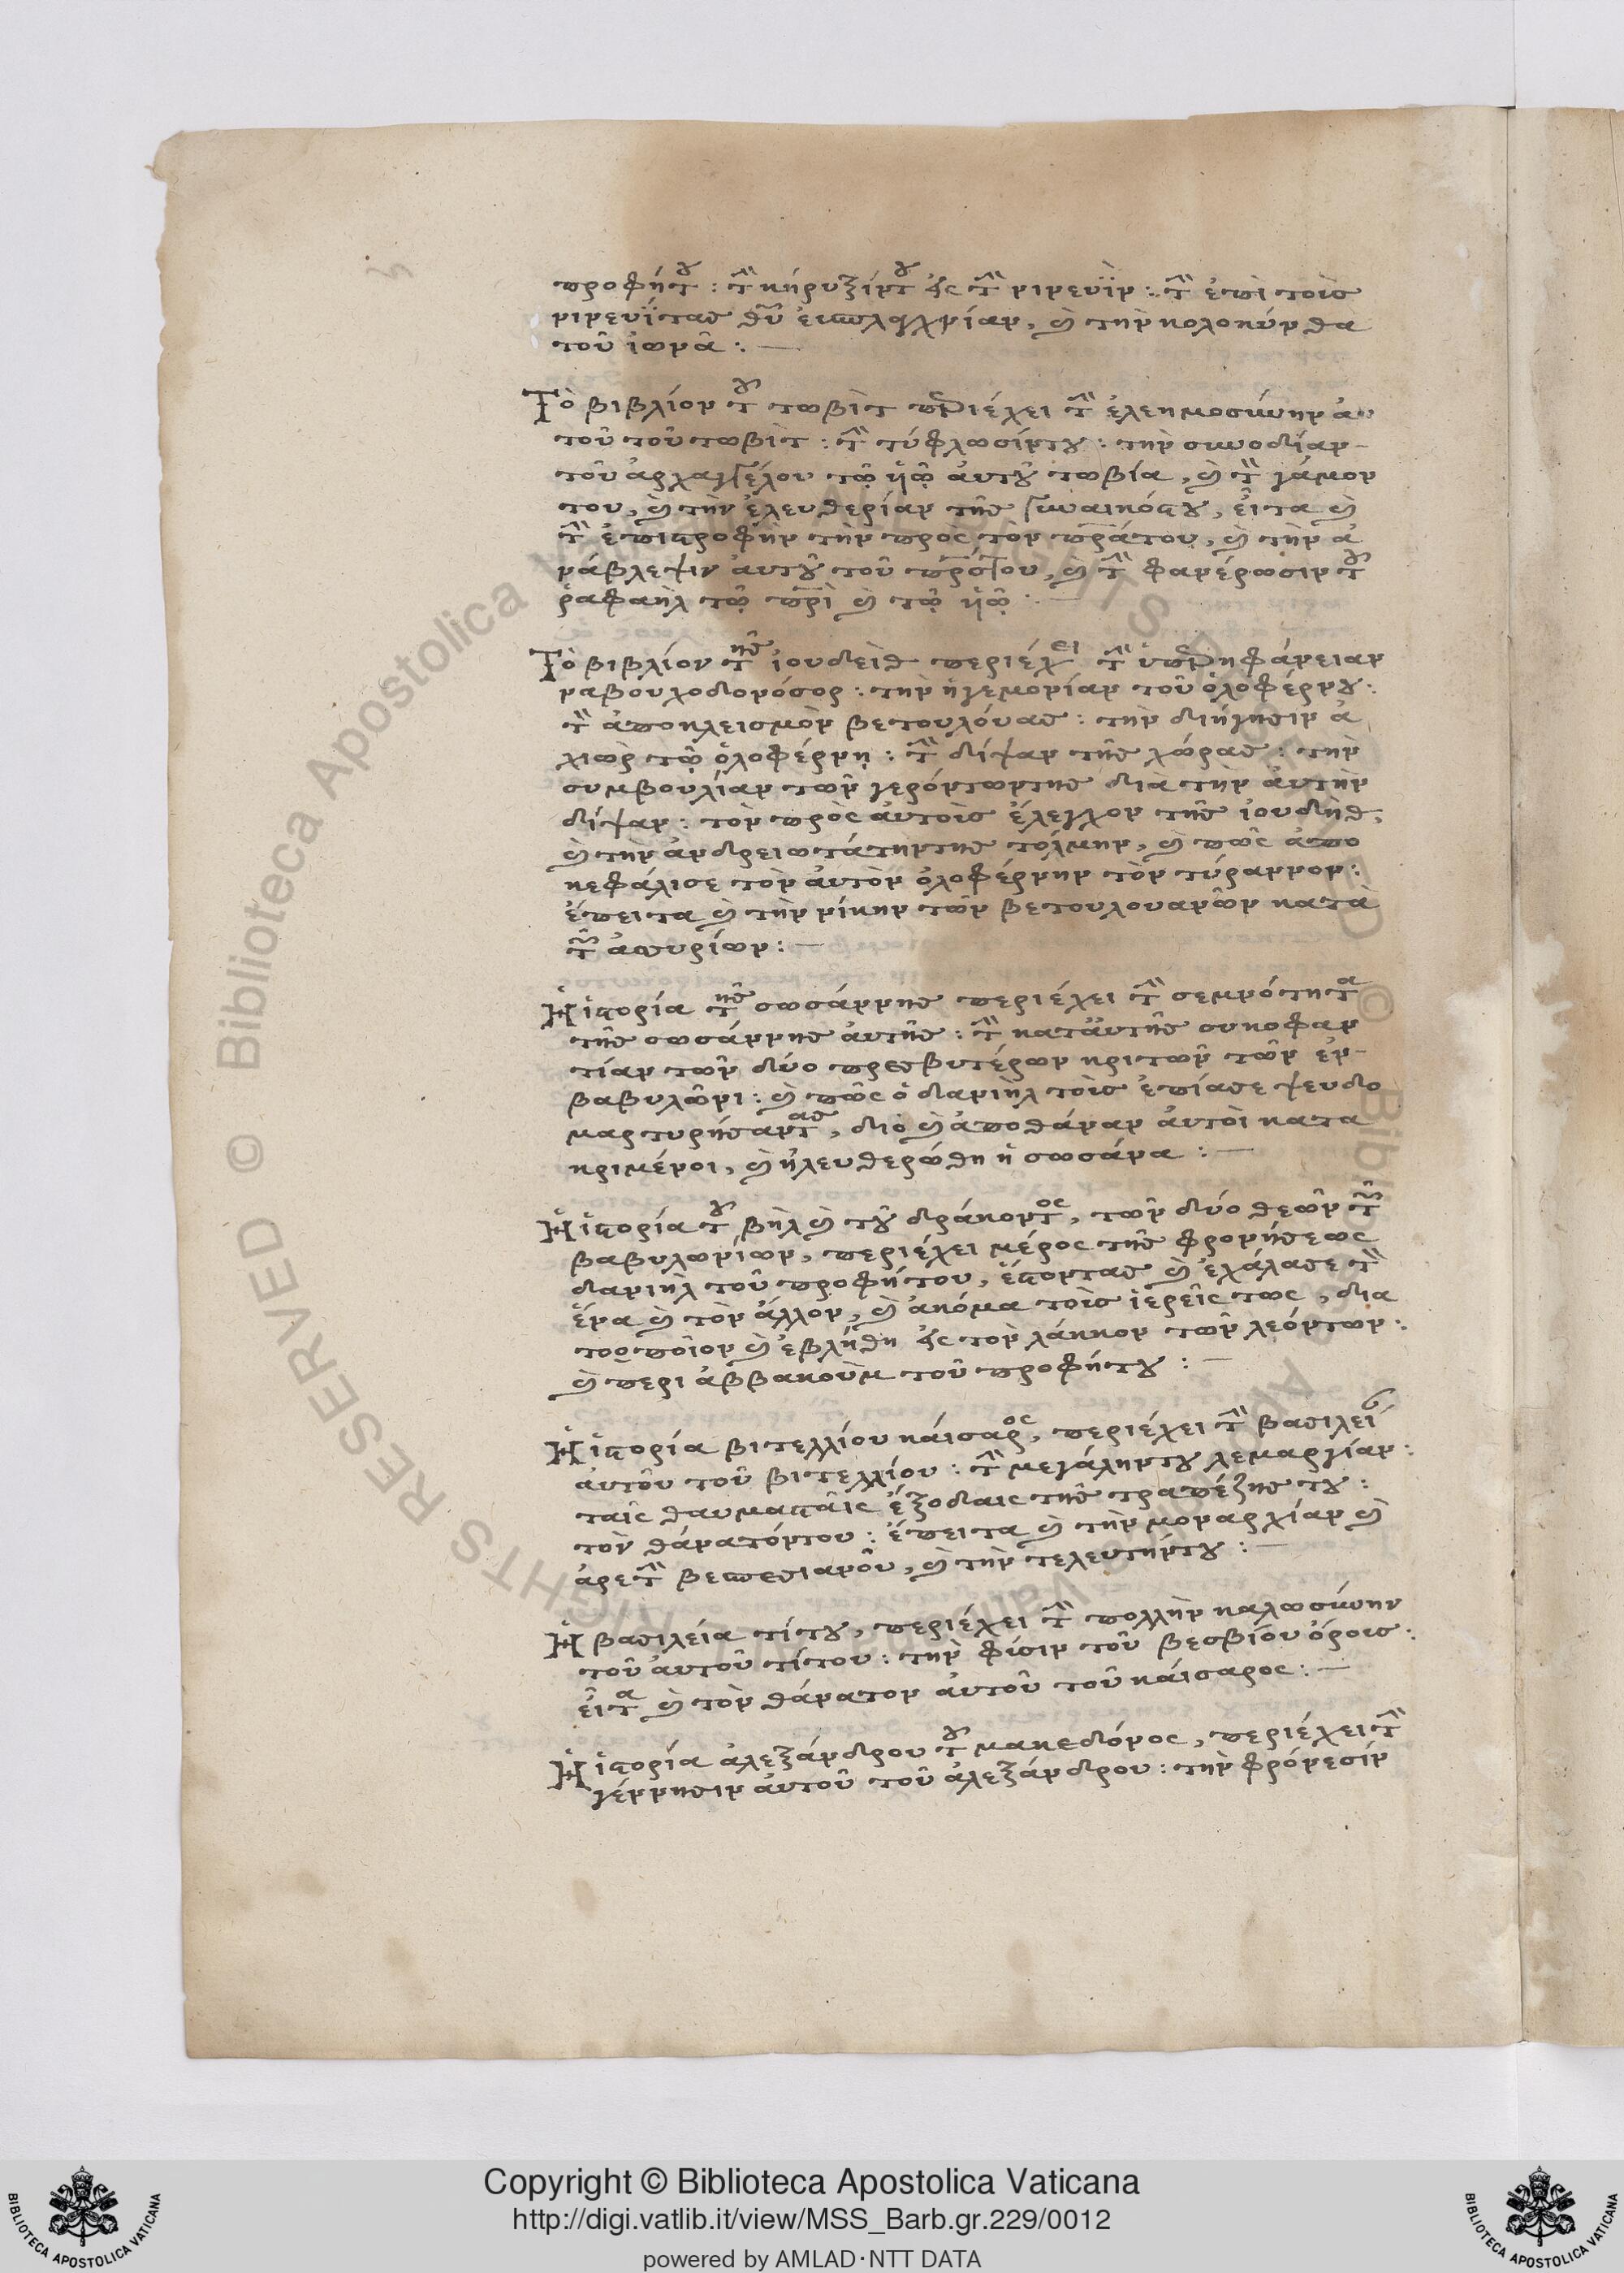 προφήτου : τὴν κήρυξίν του εἰς τὴν νινευΐν : τὴν ἐπὶ τοῖς
νινευΐτας θεοῦ εὐσπλαχνίαν, καὶ τὴν κολοκύνθα
τοῦ ἰωνᾶ : —
Τὸ βιβλίον τοῦ τωβὶτ περιέχει τὴν ἐλεημοσύνην ἀυ
τοῦ τοῦ τωβὶτ : τὴν τύφλωσίντου : τὴν συνοδίαν
τοῦ ἀρχαγγέλου τῷ ὑῷ ἀυτοῦ τωβία, καὶ τὸν γάμον
του, καὶ τὴν ἐλευθερίαν τῆς γυναικόςτου, εἶτα καὶ
τὴν ἐπιστροφὴν τὴν πρὸς τὸν πράτου, καὶ τὴν ἀ
νάβλεψιν ἀυτοῦ τοῦ πρόςτου, καὶ τὴν φανέρωσιν τοῦ
ῥαφαὴλ τῷ πρὶ καὶ τῷ ὑῷ : —
Τὸ βιβλίον τῆς ἰουδεὶθ περιέχει τὴν ὑπερηφάνειαν
ναβουχοδονόσορ : τὴν ἡγεμονίαν τοῦ ὁλοφέρνου :
τὸν ἀποκλεισμὸν βετουλούας : τὴν διήγησιν ἀ
χιὼρ τῷ ὁλοφέρνῃ : τὴν δίψαν τῆς χώρας : τὴν
συμβουλίαν τῶν γερόντωντης διὰ τὴν ἀυτὴν
δίψαν : τὸν πρὸς ἀυτοὶς ἔλεγχον τῆς ἰουδὴθ,
καὶ τὴν ἀνδρειοτάτηντης τόλμην, καὶ πῶς ἀπο
κεφάλισε τὸν ἀυτὸν ὁλοφέρνην τὸν τύραννον :
ἔπειτα καὶ τὴν νίκην τῶν βετουλουανῶν κατὰ
τῶν ἀσσυρίων : —
Ἡ ἱστορία τῆς σωσάννης περιέχει τὴν σεμνότητα
τῆς σωσάννης ἀυτῆς : τὴν κατἀυτῆς συκοφαν
τίαν τῶν δύο πρεσβυτέρων κριτῶν τῶν ἐν
βαβυλῶνι : καὶ πῶς ὁ δανιὴλ τοὶς ἐπίασε ψευδο
μαρτυρήσαντας, διὸ καὶ ἀποθάναν ἀυτοὶ κατα
κριμένοι, καὶ ἠλευθερώθη ἡ σωσάνα : —
Ἡ ἱστορία τοῦ βὴλ καὶ τοῦ δράκοντος, τῶν δύο θεῶν τῶν
βαβυλωνίων, περιέχει μέρος τῆς φρονήσεως
δανιὴλ τοῦ προφήτου, ἔστοντας καὶ ἐχάλασε τὸν
ἕνα καὶ τὸν ἄλλον, καὶ ἀκόμα τοὶς ἱερεῖς τως, δια
τοοποῖον καὶ ἐβλήθη εἰς τὸν λάκκον τῶν λεόντων :
καὶ περι ἀββακοὺμ τοῦ προφήτου : —
Ἡ ἱστορία βιτελλίου κάισαρος, περιέχει τὴν βασιλείαν
ἀυτοῦ τοῦ βιτελλίου : τὴν μεγάληντου λεμαργίαν :
ταῖς θαυμασταῖς ἔξοδαις τῆς τραπέζης του :
τὸν θάνατόντου : ἔπειτα καὶ τὴν μοναρχίαν καὶ
ἀρετὴν βεσπεσιανοῦ, καὶ τὴν τελευτήντου : —
Ἡ βασιλεία τίτου, περιέχει τὴν πολλὴν καλωσύνην
τοῦ ἀυτοῦ τίτου : τὴν φύσιν τοῦ βεσβίου ὄροις :
εἶτα καὶ τὸν θάνατον ἀυτοῦ τοῦ κάισαρος : —
Ἡ ἱστορία ἀλεξάνδρου τοῦ μακεδόνος, περιέχει τὴν
γέννησιν ἀυτοῦ τοῦ ἀλεξάνδρου : τὴν φρόνεσίν
© Biblioteca Apostolica Vaticana
ALL RIGHTS RESERVED
Copyright © Biblioteca Apostolica Vaticana
http://digi.vatlib.it/view/MSS_Barb.gr.229/0012
powered by AMLAD·NTT DATA
BIBLIOTECA APOSTOLICA VATICANA
BIBLIOTECA APOSTOLICA VATICANA